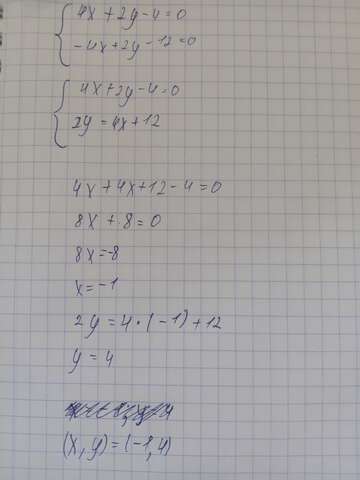 4x + 2y - 4 = 0
-4x + 2y - 12 = 0
4x + 2y - 4 = 0
2y = 4x + 12
4x + 4x + 12 - 4 = 0
8x + 8 = 0
8x = -8
x = -1
2y = 4 • (-1) + 12
y = 4
(x, y) = (-1, 4)